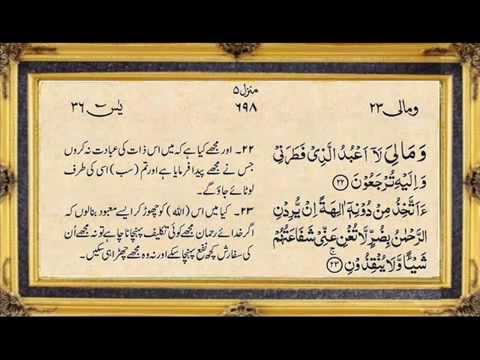 منزل ۵
ومالی ۲۳
۶۹۸
یٰس ۳۶
وَمَا لِیَ لَاۤ اَعْبُدُ الَّذِیْ فَطَرَنِیْ
وَاِلَیْهِ تُرْجَعُوْنَ ﴿۲۲﴾
ءَاَتَّخِذُ مِنْ دُوْنِهٖۤ اٰلِهَةً اِنْ یُّرِدْنِ
الرَّحْمٰنُ بِضُرٍّ لَّا تُغْنِ عَنِّیْ شَفَاعَتُهُمْ
شَیْـًٔا وَّلَا یُنْقِذُوْنِ ﴿۲۳﴾
۲۲۔ اور مجھے کیا ہے کہ میں اس ذات کی عبادت نہ کروں
جس نے مجھے پیدا فرمایا ہے اور تم (سب) اسی کی طرف
لوٹائے جاؤ گے۔
۲۳۔ کیا میں اس (اللہ) کو چھوڑ کر ایسے معبود بنالوں کہ
اگر خدائے رحمان مجھے کوئی تکلیف پہنچانا چاہے تو نہ مجھے اُن
کی سفارش کچھ نفع پہنچا سکے اور نہ وہ مجھے چھڑا ہی سکیں۔